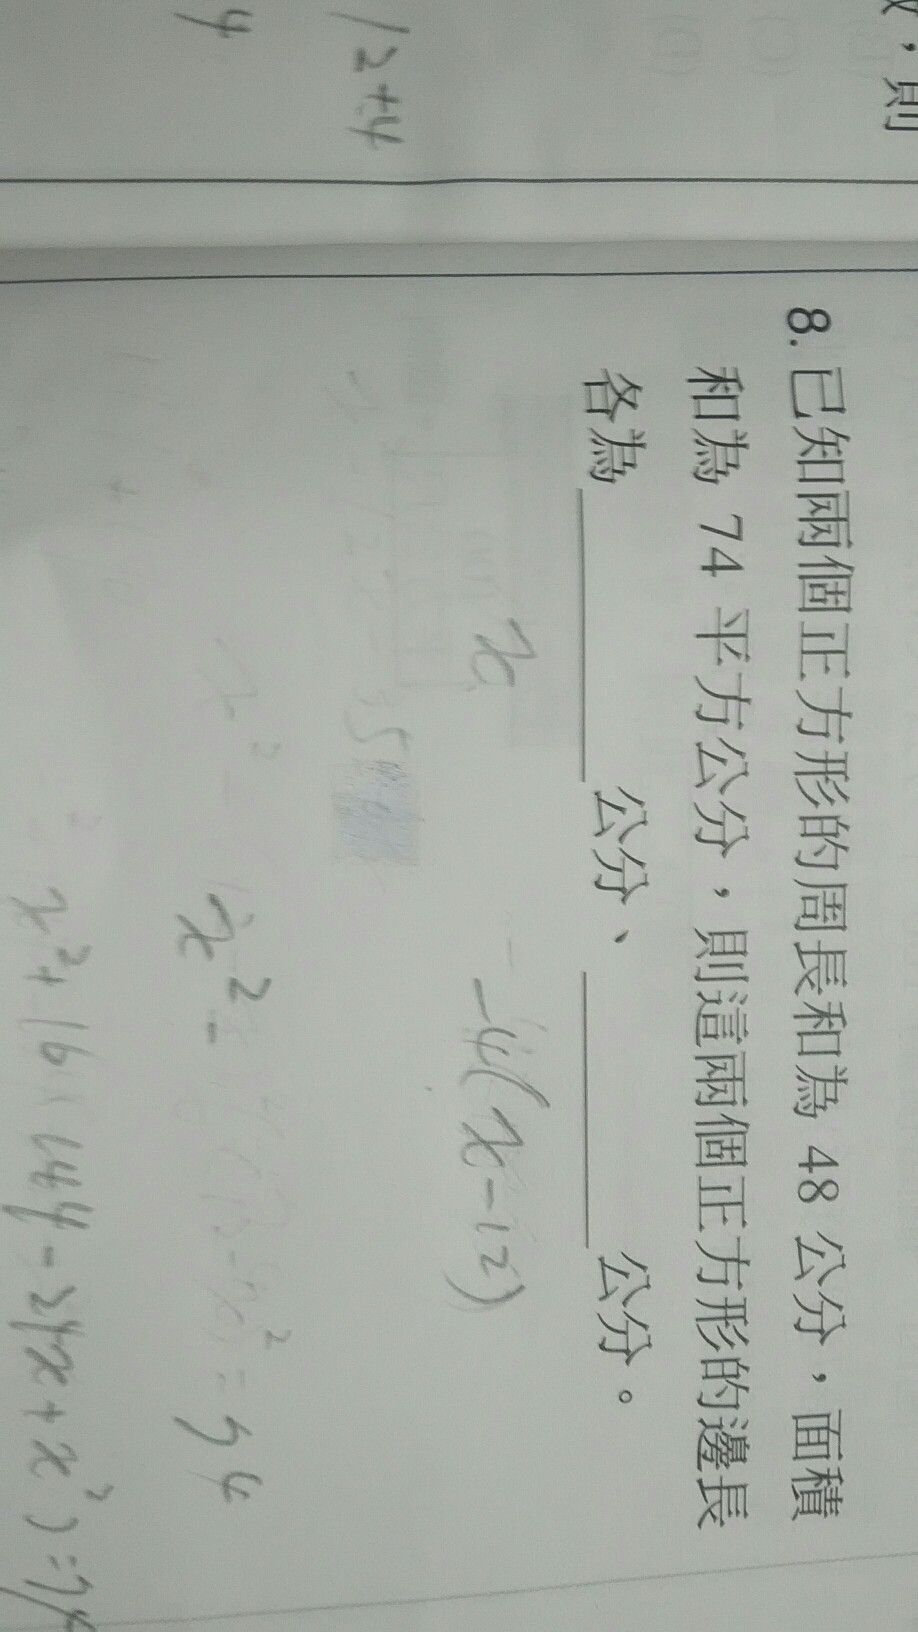 ，則
12+4
4
8. 已知兩個正方形的周長和為 48 公分，面積
和為 74 平方公分，則這兩個正方形的邊長
各為 公分、 公分。
x -4(x-12)
x²+16(144-24x+x²)=74